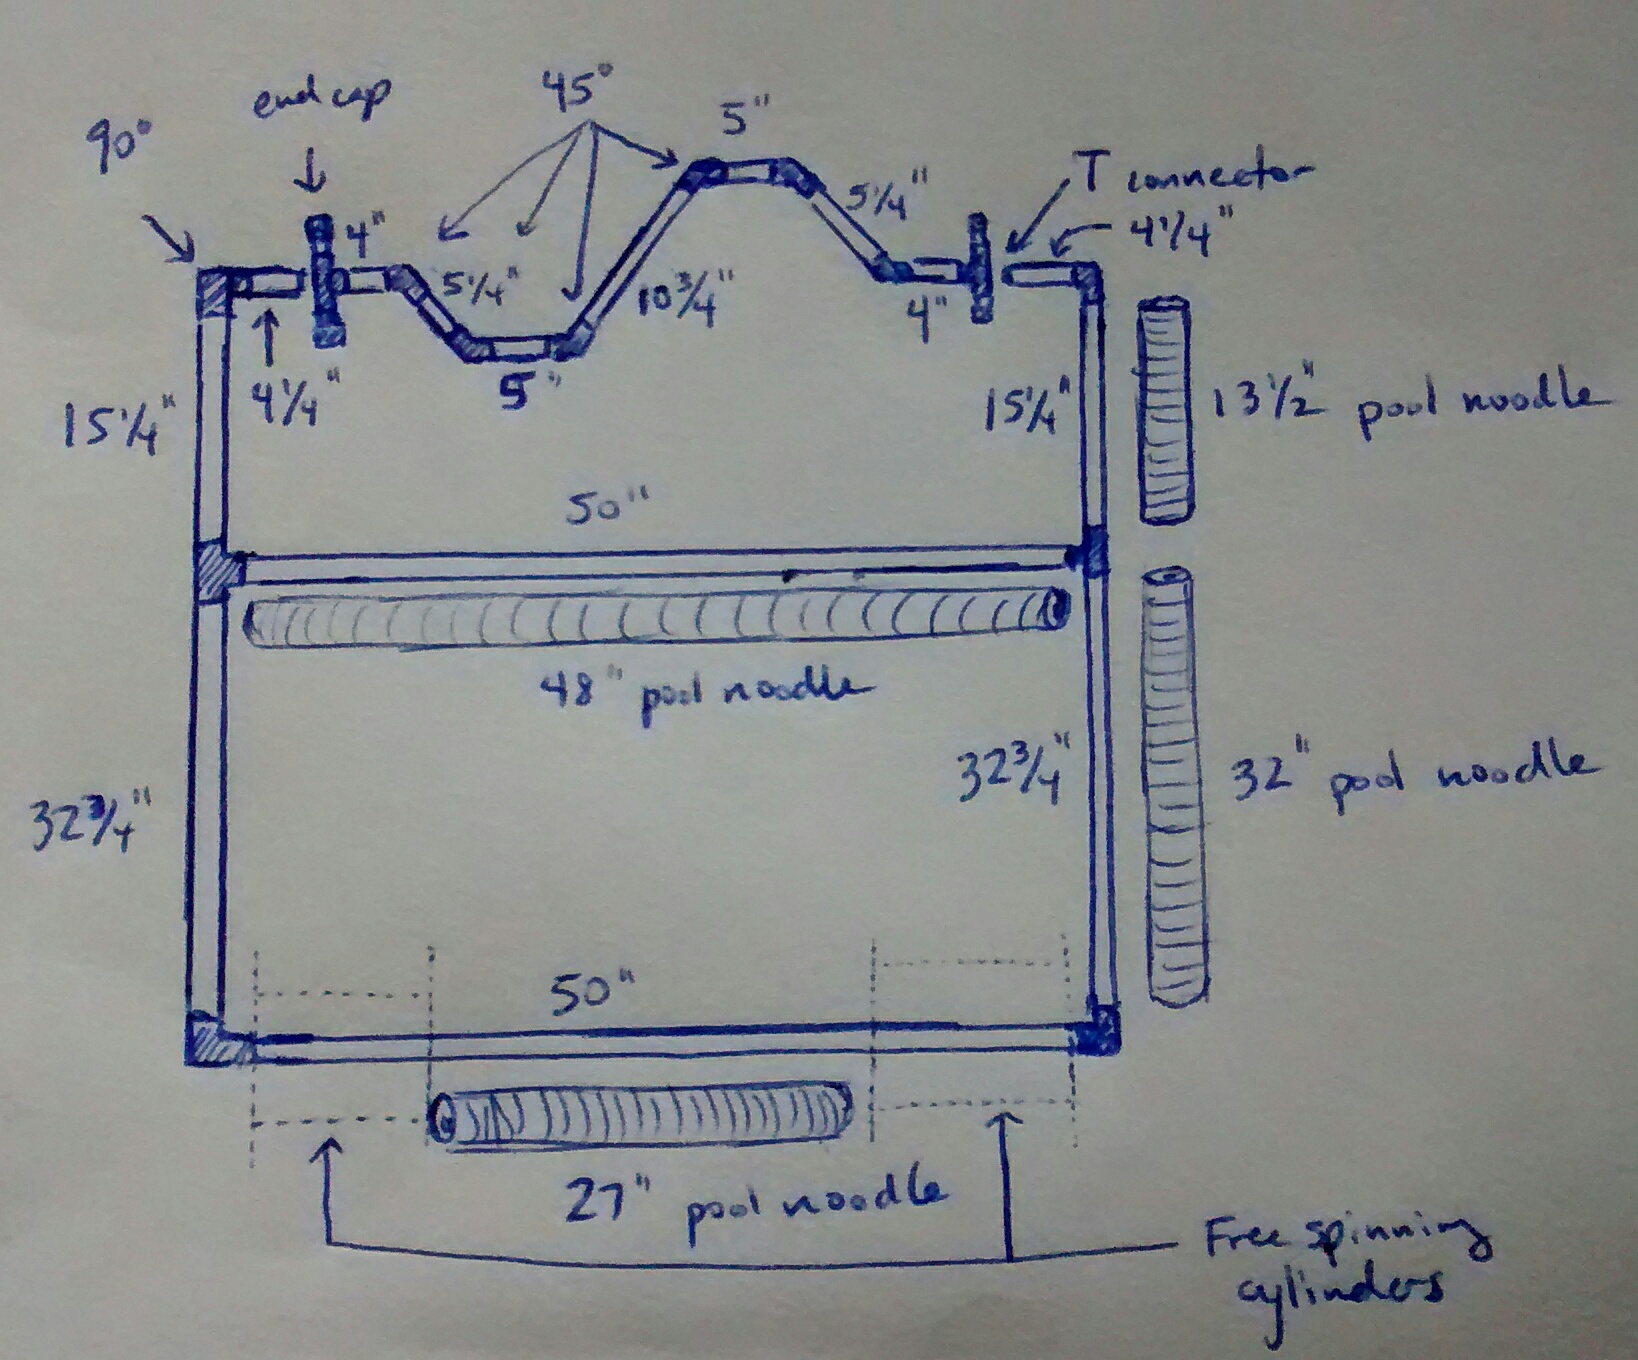 45°
end cap
5"
90°
T connector
5 1/4"
4"
4 1/4"
5 1/4"
10 3/4"
4"
4 1/4"
5"
15 1/4"
15 1/4"
13 1/2" pool noodle
50"
48" pool noodle
32 3/4"
32" pool noodle
32 3/4"
50"
27" pool noodle
Free spinning
cylinders